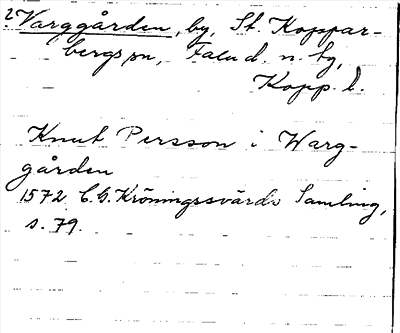 2 Varggården, by, St. Koppar-
bergs sn, Falu d. n. tg,
Kopp. l.
Knut Persson i Warg-
gården
1572. C. G. Kröningssvärds Samling,
s. 79.